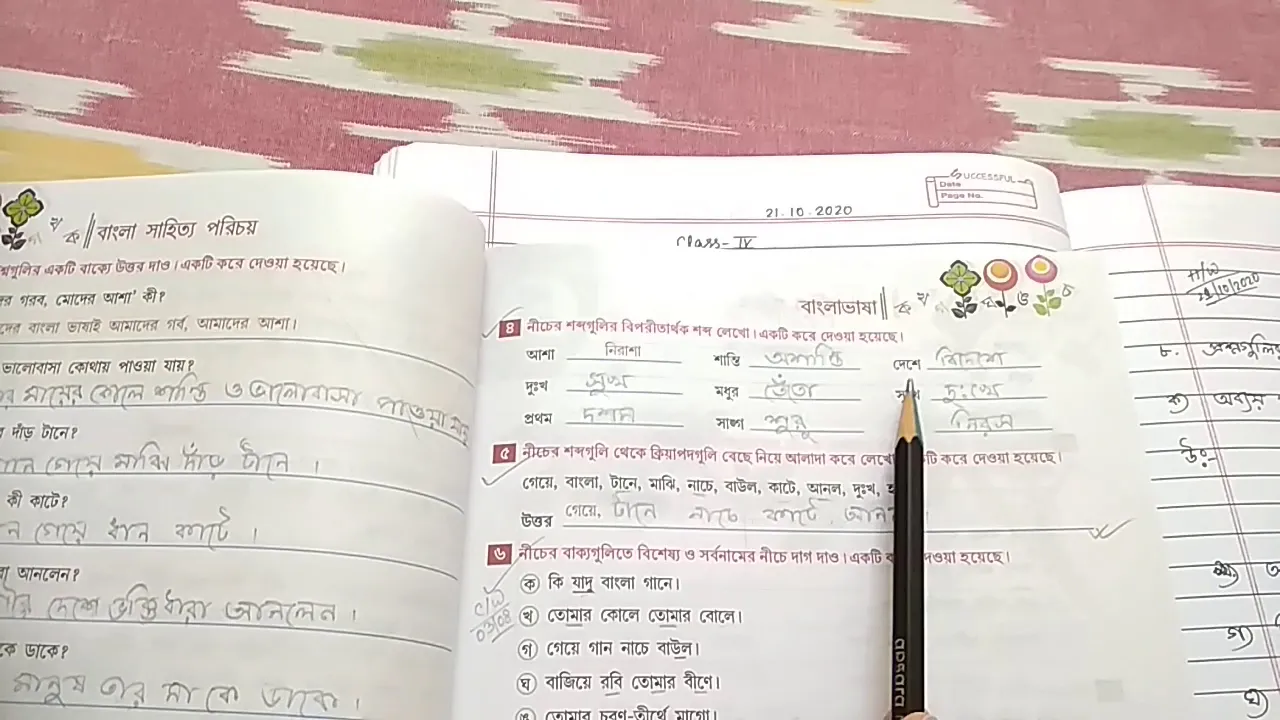 SUCCESSFUL
Date
Page No.
21.10.2020
Class-IV
বাংলা সাহিত্য পরিচয়
একটি বাক্যে উত্তর দাও। একটি করে দেওয়া হয়েছে।
গরব, মোদের আশা' কী?
বাংলা ভাষাই আমাদের গর্ব, আমাদের আশা।
ভালোবাসা কোথায় পাওয়া যায়?
মায়ের কোলে শান্তি ও ভালোবাসা পাওয়া যায়
দাঁড় টানে?
গেয়ে মাঝি দাঁড় টানে ।
কী কাটে?
গেয়ে ধান কাটে ।
আনলেন?
দেশে ভক্তিধারা আনলেন ।
কে ডাকে?
মানুষ তার মাকে ডাকে ।
বাংলাভাষা
ক খ গ ঘ ঙ চ
৪ নীচের শব্দগুলির বিপরীতার্থক শব্দ লেখো। একটি করে দেওয়া হয়েছে।
আশা নিরাশা শান্তি অশান্তি দেশে বিদেশে
দুঃখ সুখ মধুর তেঁতো দুঃখে
প্রথম দশম সাঙ্গ শুরু নিরস
৫ নীচের শব্দগুলি থেকে ক্রিয়াপদগুলি বেছে নিয়ে আলাদা করে লেখো করে দেওয়া হয়েছে।
গেয়ে, বাংলা, টানে, মাঝি, নাচে, বাউল, কাটে, আনল, দুঃখ,
উত্তর গেয়ে, টানে নাচে কাটে আনল
৬ নীচের বাক্যগুলিতে বিশেষ্য ও সর্বনামের নীচে দাগ দাও। একটি দেওয়া হয়েছে।
ক কি যাদু বাংলা গানে।
খ তোমার কোলে তোমার বোলে।
গ গেয়ে গান নাচে বাউল।
ঘ বাজিয়ে রবি তোমার বীণে।
ঙ তোমার চরণ-তীর্থে মাগো।
C/W
03/08
H/W
21/10/2020
৮. প্রশ্নগুলির
ক) অব্যয়
উঃ-
গ)
ঘ)